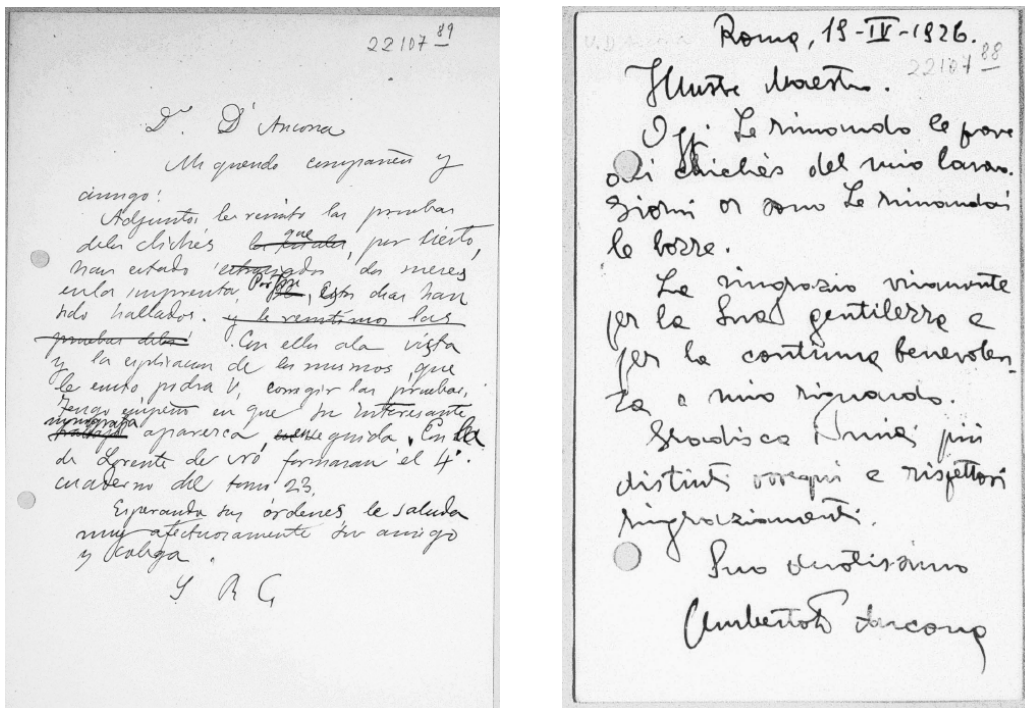 22107 89
Dr. D'Ancona
Mi querido compañero y
amigo:
Adjuntos le remito las pruebas
de los clichés que, por cierto,
han estado extraviados dos meses
en la imprenta. Por fin, estos dias han
sido hallados. y le remitimos las
pruebas de los Con ellos a la vista
y la esplicacion de los mismos que
le envio podra V. corregir las pruebas.
Tengo empeño en que su interesante
monografia aparezca, enseguida. Con la
de Lorente de Nó formaran el 4º
cuaderno del tomo 23.
Esperando sus órdenes le saluda
muy afectuosamente su amigo
y colega.
S R C
Roma, 19-IV-1926.
U. D'Ancona
22107 88
Illustre Maestro.
Oggi Le rimando le prove
dei clichès del mio lavoro.
Giorni or sono Le rimandai
le bozze.
La ringrazio vivamente
per la Sua gentilezza e
per la continua benevolen-
za a mio riguardo.
Gradisca i miei più
distinti ossequi e rispettosi
ringraziamenti.
Suo devotissimo
Umberto D'Ancona